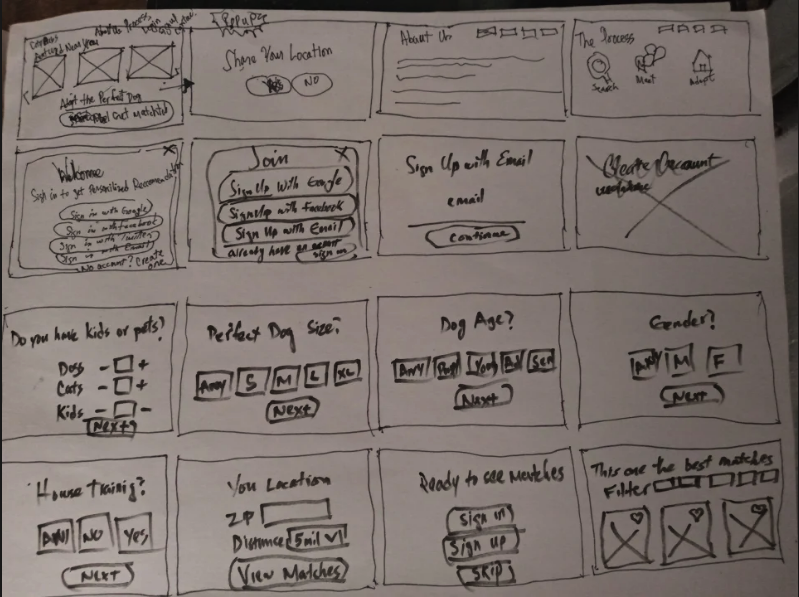 About Us Process
Featured Near You
Adopt the Perfect Dog
Get Matched
PopUp
Share Your Location
Yes NO
About Us
The Process
Search Meet Adopt
Welcome X
Sign in to get Personalized Recommendation
Sign in with Google
Sign in with Facebook
Sign in with Twitter
Sign up with Email
No account? Create one
Join X
Sign Up With Google
Sign Up with Facebook
Sign Up with Email
already have an account
sign in
Sign Up with Email
email
continue
Create Account
Do you have kids or pets?
Dogs - +
Cats - +
Kids - -
Next
Perfect Dog Size?
Any S M L XL
Next
Dog Age?
Any Pup Young Ad Sen
Next
Gender?
Any M F
Next
House Trainig?
Any NO Yes
Next
You Location
ZP
Distance 5mil
View Matches
Ready to see Matches
Sign in
Sign up
Skip
This are the best matches
Filter